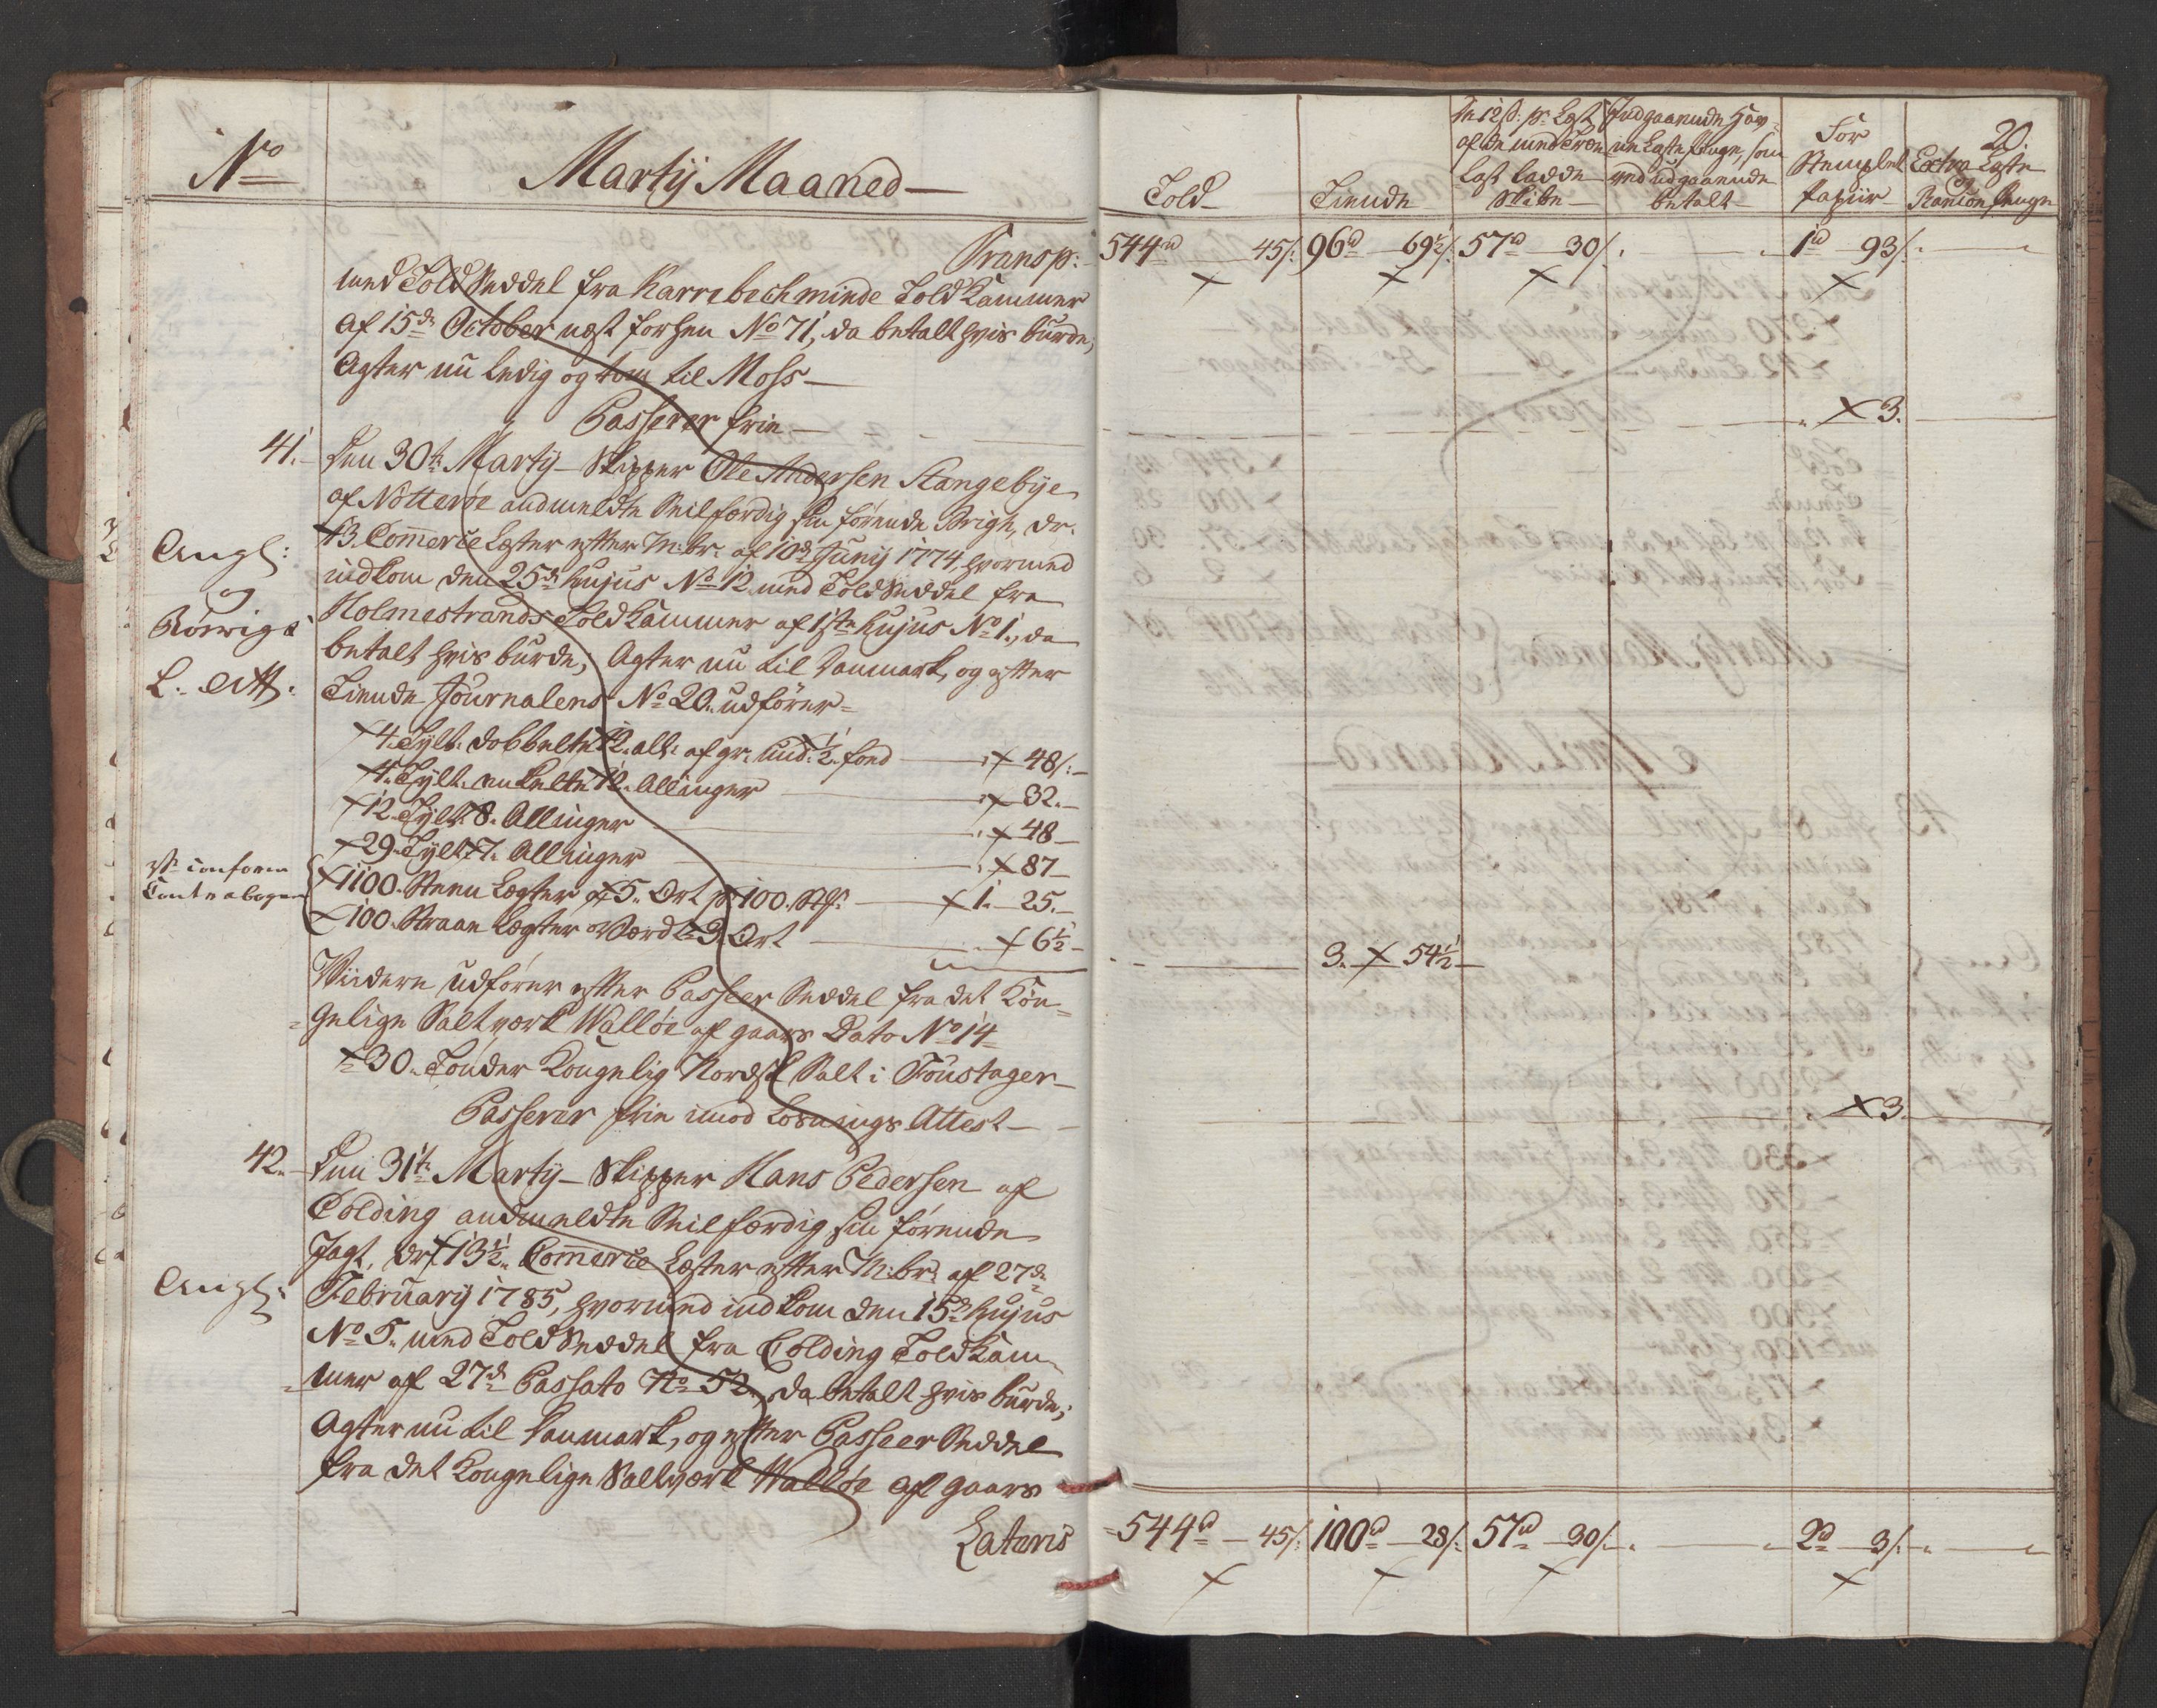 No
Martij Maaned
Transp:
med Told Seddel fra Karrebechminde Told Kammer
af 15de October næst forhen No 71, da betalt hvis burde,
Agter nu ledig og tom til Moss
Passerer frie
41. Den 30te Martij Skipper Ole Andersen Stangebye
af Nötteröe andmeldte Seilfærdig sin förende Brige, dr.
43 Commerce Læster efter M:br: af 10de Junij 1774, hvormed
indkom den 25de hujus No 12 med Told Seddel fra
Holmestrands Told Kammer af 1ste hujus No 1, da
betalt hvis burde; Agter nu til Danmark, og efter
Tiende Journalens No 20 udförer
Angl:
og
L. Att:
4 Tylt dobbelte 12 all: af gr: Und: ½ fond 48/:
4 Tylt enkelte 12 Allinger 32.
12 Tylt 8 Allinger 48
29 Tylt 7 Allinger 87
1100 Steen Lægter af 5 Ort pr 100 St: 1. 25.
100 Straae Lægter Værd 3 Ort 6½
conform
Contrabogen
3. 54½
Viidere udförer efter Passeer Seddel fra det Kön-
gelige Saltværk Wallöe af gaars Dato No 14
30 Tönder Kongelig Nordsk Salt i Foustager
Passerer frie imod Losnings Attest
42. Den 31te Martij Skipper Hans Pedersen af
Colding andmeldte Seilfærdig sin förende
Jagt, dr: 13½ Commerce Læster efter M:br: af 27de
Februarij 1785, hvormed indkom den 15de hujus
No 5 med Told Seddel fra Colding Told Kam-
mer af 27de Passato No 52, da betalt hvis burde;
Agter nu til Danmark, og efter Passeer Seddel
fra det Kongelige Saltværk Wallöe af gaars
Angl:
Lateris
20.
Told
Tiende
A 12 s: pr Læst af de med Træe Last ladde Skibe
Indgaaende Hav-
ne Læstepenge, som
ved udgaaende
betalt
For
Stemplet
Papiir
Extra Læste
og
Rancionpenge
544d 45/: 96d 69½/: 57d 30/: 1d 93/:
3.
3.
544d 45/: 100d 28/: 57d 30/: 2d 3/: